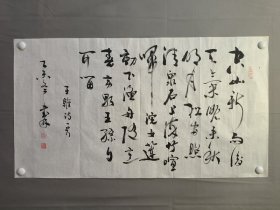 空山新雨後
天氣晚来秋
明月松間照
清泉石上流竹喧
歸浣女蓮
動下漁舟随意
春芳歇王孫自
可留
王維詩一首